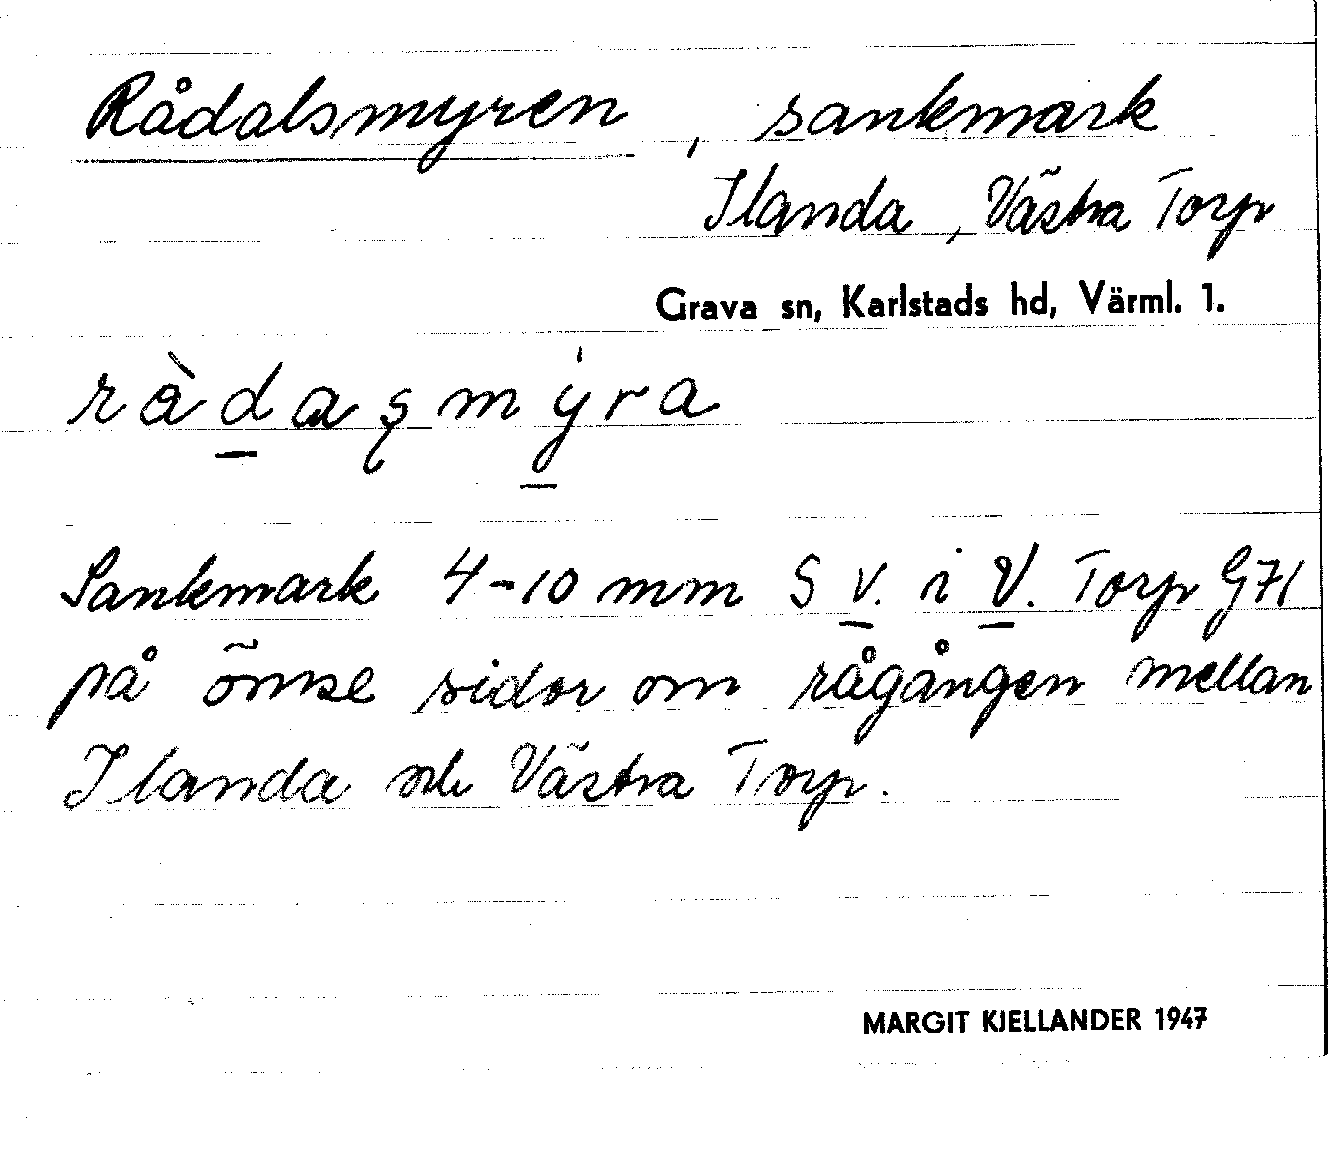 Rådalsmyren, sankmark
Ilanda, Västra Torp
Grava sn, Karlstads hd, Värml. 1.
rå̀daşmýra
Sankmark 4-10 mm S V. i V. Torp G71
på ömse sidor om rågången mellan
Ilanda och Västra Torp.
MARGIT KJELLANDER 1947